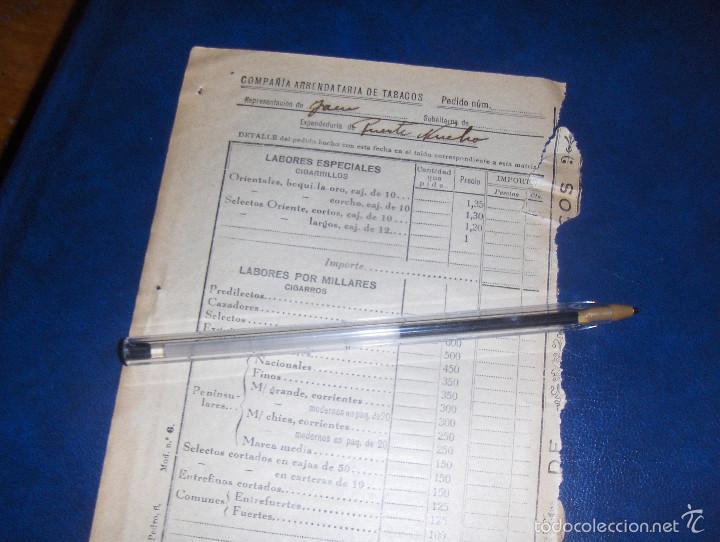 COMPAÑIA ARRENDATARIA DE TABACOS Pedido núm.
Representación de Jaen Subalterna de
Expendeduría de Puente Nuebo
DETALLE del pedido hecho con esta fecha en el talón correspondiente a esta matriz
LABORES ESPECIALES
CIGARRILLOS
Cantidad que pide. Precio IMPORT
Pesetas Cts.
Orientales, boquilla oro, caj. de 10... 1,35
» » corcho, caj. de 10 1,30
Selectos Oriente, cortos, caj. de 10... 1,20
» » largos, caj. de 12.... 1
Importe
LABORES POR MILLARES
CIGARROS
Predilectos
Cazadores
Selectos
600
500
Nacionales 450
Finos 350
Peninsulares... M/ grande, corrientes 350
modernos en paq. de 20 300
M/ chica, corrientes 300
modernos en paq. de 20 250
Marca media 250
Selectos cortados en cajas de 50 150
» » en carteras de 10 150
Entrefinos cortados 150
Comunes Entrefuertes 125
Fuertes 125
100
Mod. n.º 6.
Pedro, 6.
DE
COS
todocoleccion.net